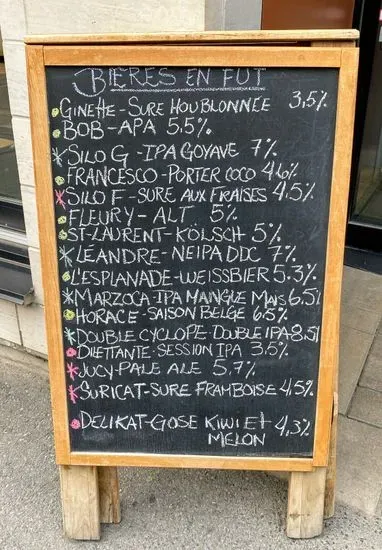 BIÈRES EN FÛT
GINETTE - SURE HOUBLONNÉE 3,5%
BOB - APA 5.5%
SILO G - IPA GOYAVE 7%
FRANCESCO - PORTER COCO 4,6%
SILO F - SURE AUX FRAISES 4,5%
FLEURY - ALT 5%
ST-LAURENT - KÖLSCH 5%
LÉANDRE - NEIPA DDC 7%
L'ESPLANADE - WEISSBIER 5.3%
MARZOCA - IPA MANGUE MAIS 6.5%
HORACE - SAISON BELGE 6.5%
DOUBLE CYCLOPE - DOUBLE IPA 8.5%
DILETTANTE - SESSION IPA 3.5%
JUCY - PALE ALE 5,7%
SURICAT - SURE FRAMBOISE 4,5%
DELIKAT - GOSE KIWI ET 4,3%
MELON